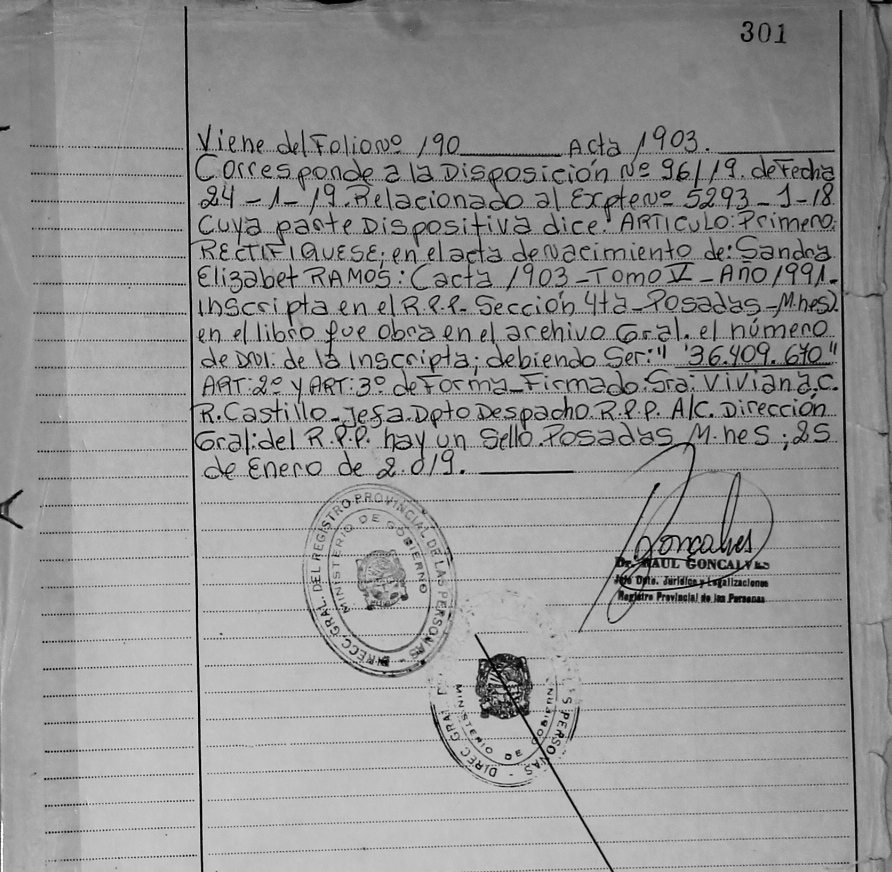 301
Viene del Folio Nº 190 Acta 1903.
Corresponde a la Disposición Nº 96/19. de Fecha
24-1-19. Relacionado al Expte Nº 5293-1-18
Cuya parte Dispositiva dice: ARTICULO: Primero:
RECTIFIQUESE; en el acta de Nacimiento de: Sandra
Elizabet RAMOS: (acta 1903-Tomo V-Año 1991-
Inscripta en el R.P.P. Sección 4ta-Posadas-M.nes)
en el libro que obra en el archivo Gral. el número
de DNI. de la Inscripta; debiendo Ser: "36.409.670"
ART: 2º y ART: 3º de Forma_Firmado Sra: Viviana.C.
R.Castillo_Jefa.Dpto Despacho.R.P.P. A/C. Dirección
Gral: del R.P.P. hay un Sello.Posadas M.nes; 25
de Enero de 2.019.
Goncalves
Dr. RAUL GONCALVES
Jefe Dpto. Jurídico y Legalizaciones
Registro Provincial de las Personas
DIRECC. GRAL. DEL REGISTRO PROVINCIAL DE LAS PERSONAS -
MINISTERIO DE GOBIERNO
DIREC. GRAL. LAS PERSONAS -
MINISTERIO DE GOBIERNO